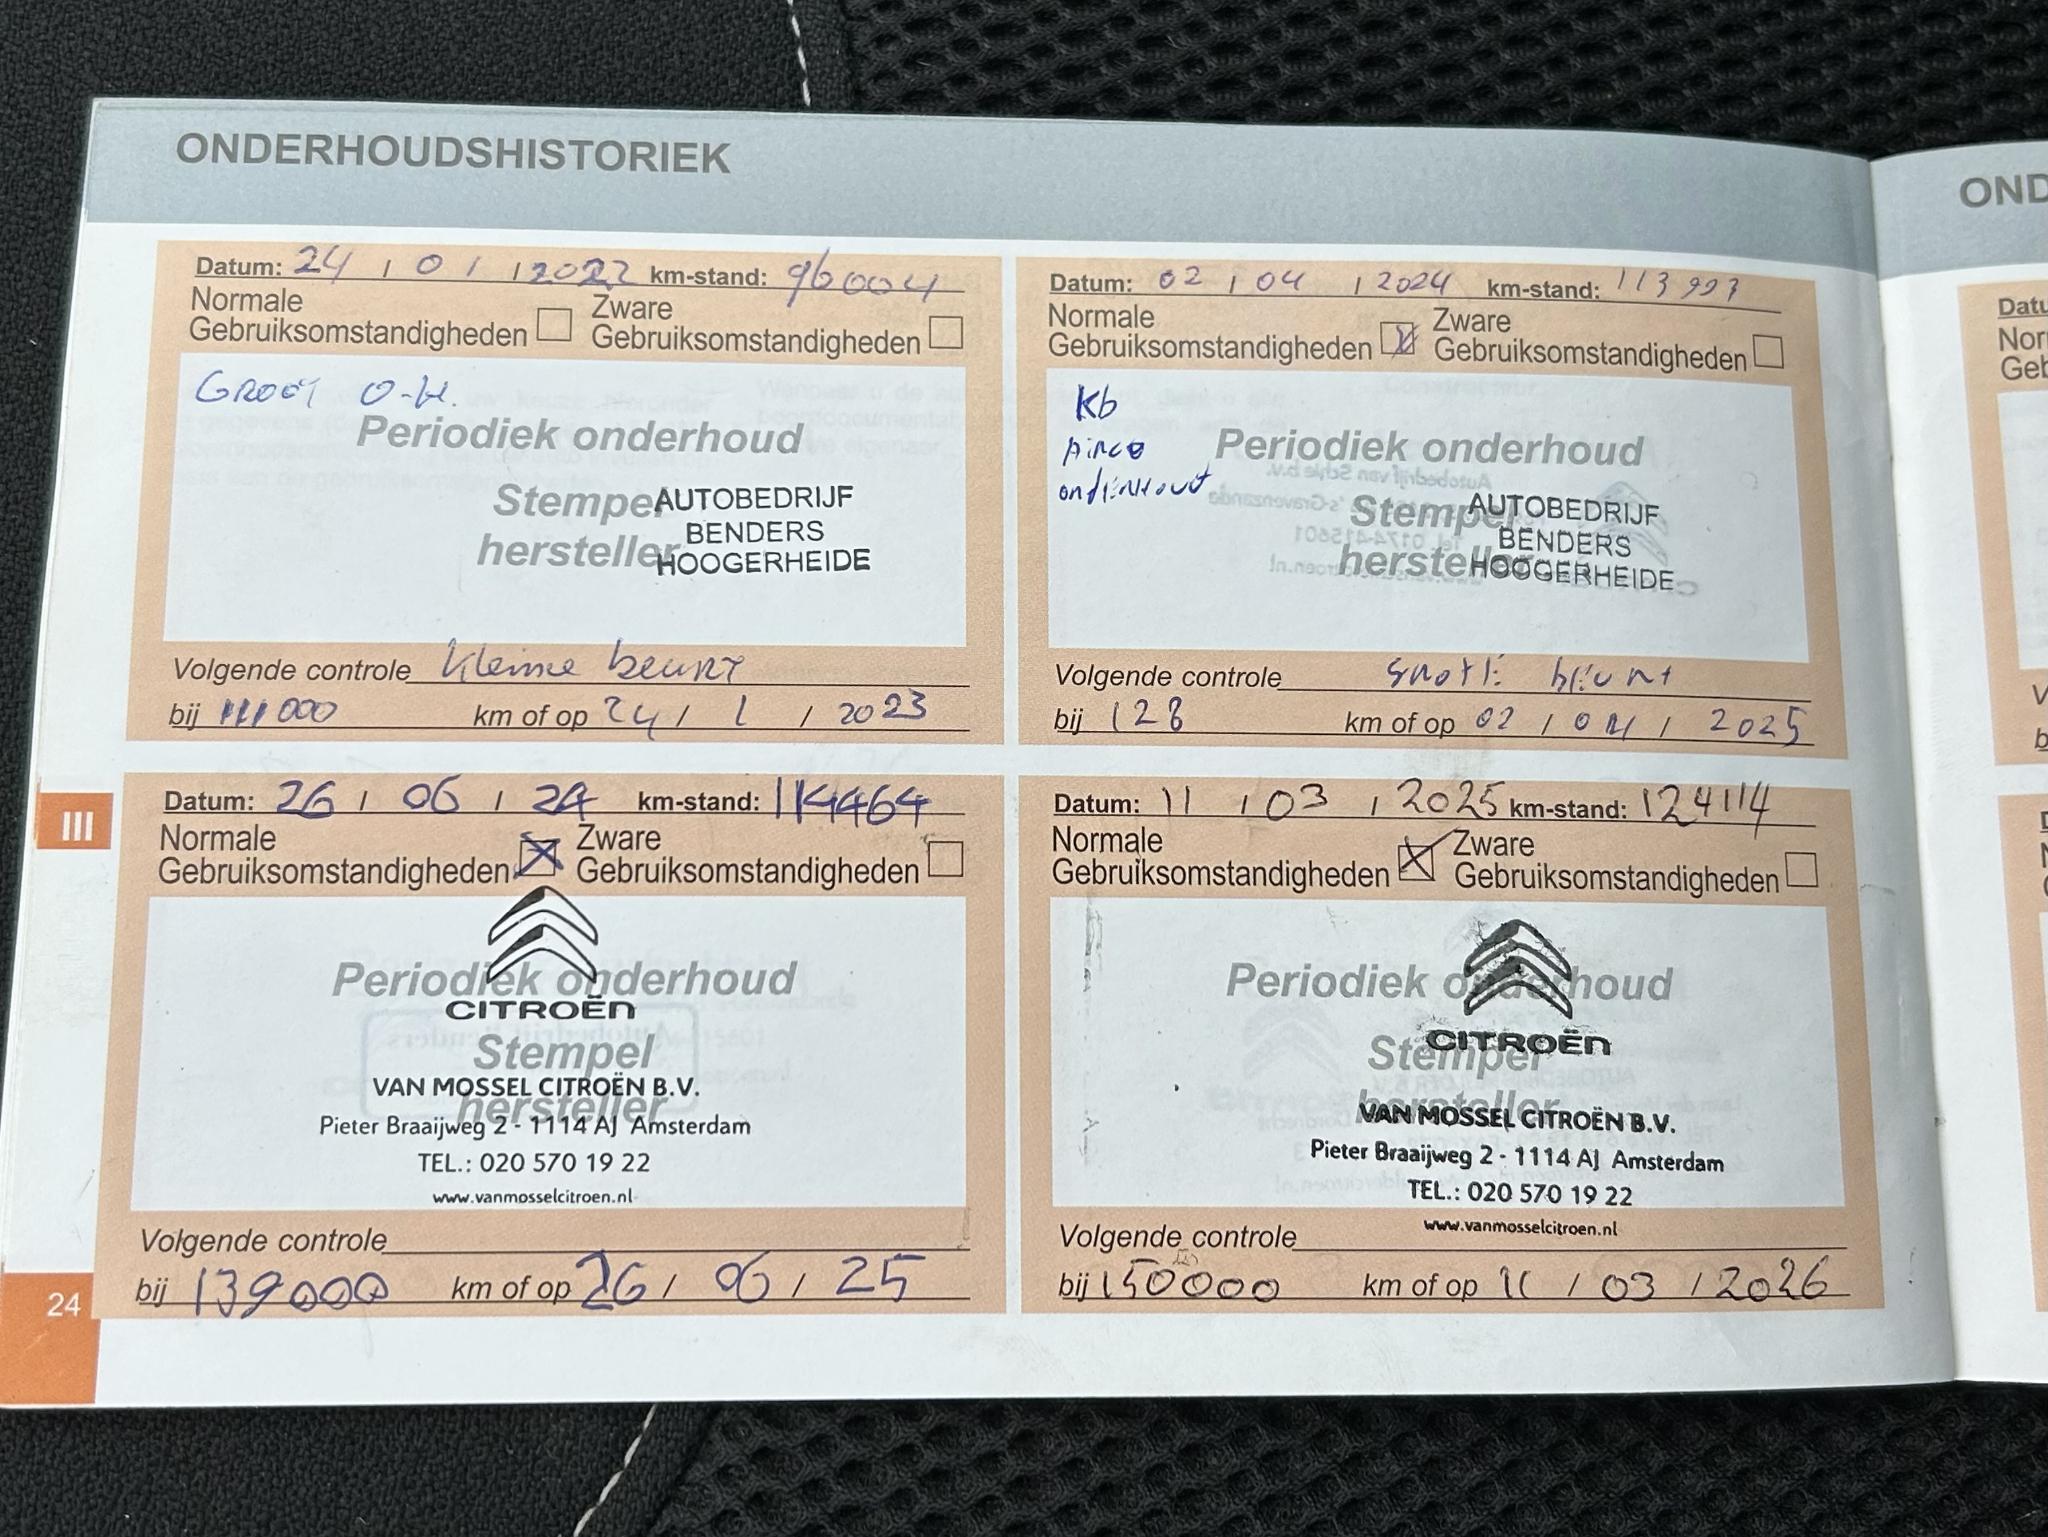 ONDERHOUDSHISTORIEK
Datum: 24 / 01 / 2022 km-stand: 96004
Normale Gebruiksomstandigheden
Zware Gebruiksomstandigheden
GROOT O-H.
Periodiek onderhoud
Stempel hersteller
AUTOBEDRIJF
BENDERS
HOOGERHEIDE
Volgende controle Kleine beurt
bij 111000 km of op 24 / 1 / 2023
Datum: 02 / 04 / 2024 km-stand: 113993
Normale Gebruiksomstandigheden
Zware Gebruiksomstandigheden
Kb
Airco
onderhoud
Periodiek onderhoud
Stempel hersteller
AUTOBEDRIJF
BENDERS
HOOGERHEIDE
Volgende controle grote beurt
bij 128 km of op 02 / 04 / 2025
Datum: 26 / 06 / 24 km-stand: 114464
Normale Gebruiksomstandigheden
Zware Gebruiksomstandigheden
Periodiek onderhoud
CITROËN
Stempel
hersteller
VAN MOSSEL CITROËN B.V.
Pieter Braaijweg 2 - 1114 AJ Amsterdam
TEL.: 020 570 19 22
www.vanmosselcitroen.nl
Volgende controle
bij 139000 km of op 26 / 06 / 25
Datum: 11 / 03 / 2025 km-stand: 124114
Normale Gebruiksomstandigheden
Zware Gebruiksomstandigheden
Periodiek onderhoud
CITROËN
Stempel
hersteller
VAN MOSSEL CITROËN B.V.
Pieter Braaijweg 2 - 1114 AJ Amsterdam
TEL.: 020 570 19 22
www.vanmosselcitroen.nl
Volgende controle
bij 150000 km of op 11 / 03 / 2026
III
24
OND